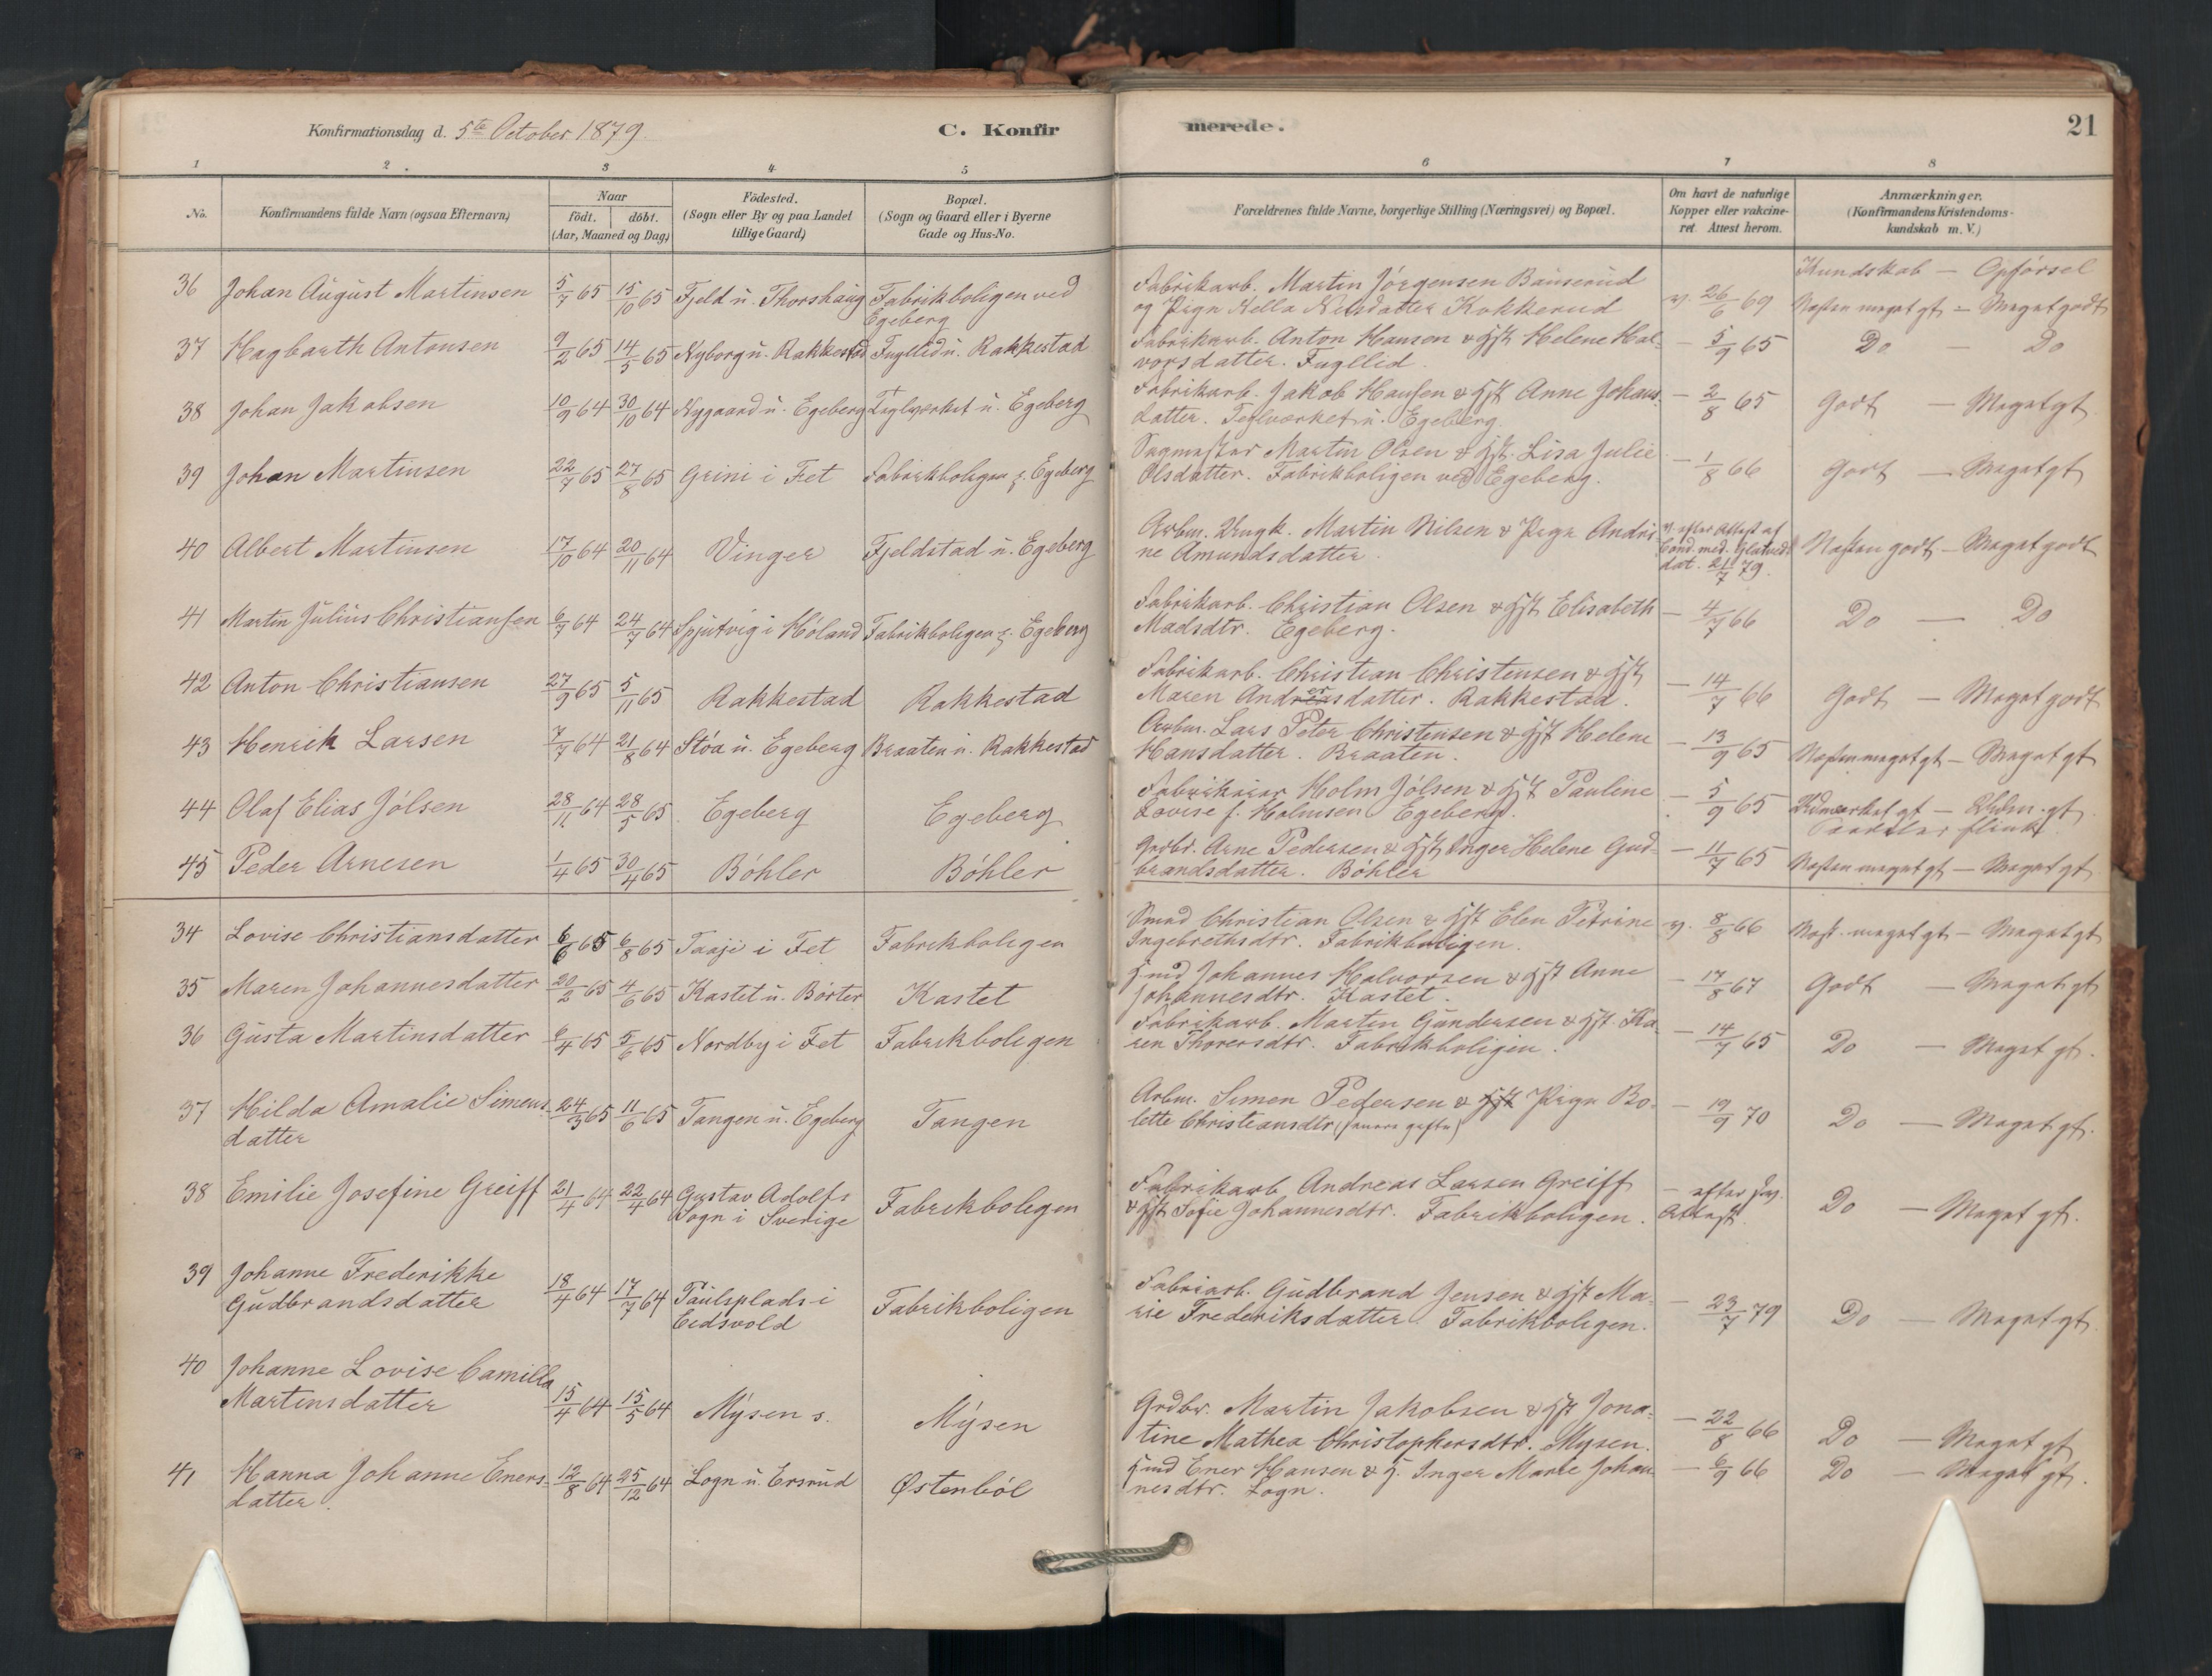 Konfirmationsdag d. 5te October 1879. C. Konfir merede. 21
1 2. 3 4 5 6 7 8
No. Konfirmandens fulde Navn (ogsaa Efternavn) Naar födt. döbt. (Aar, Maaned og Dag) Födested. (Sogn eller By og paa Landet tillige Gaard) Bopæl. (Sogn og Gaard eller i Byerne Gade og Hus-No. Forældrenes fulde Navne, borgerlige Stilling (Næringsvei) og Bopæl. Om havt de naturlige Kopper eller vakcineret. Attest herom. Anmærkninger. (Konfirmandens Kristendomskundskab m. V.)
Kundskab — Opførsel
36 Johan August Martinsen 5/7 65 15/10 65 Fjeld u. Thorshaug Fabrikboligen ved Fabrikarb. Martin Jörgensen Bauserud
Egeberg og Pign Kella Nelsdatter Kokkerud v. 26/6 69 Næsten meget gt — Meget godt
37 Hagbarth Antonsen 9/2 65 14/5 65 Nyborg u. Rakkestad Fugllid u. Rakkestad Fabrikarb. Anton Hansen & Hst Helene Hal-
vorsdatter. Fugllid — 5/9 65 Do — Do
38 Johan Jakobsen 10/9 64 30/10 64 Nygaard u. Egeberg Teglværket u. Egeberg Fabrikarb. Jakob Hansen & Hst Anne Johans
datter. Teglværket u. Egeberg. — 2/8 65 Godt — Meget gt
39 Johan Martinsen 22/7 65 27/8 65 Grini i Fet Fabrikboligen v. Egeberg Sagmester Martin Olsen & Hst. Lisa Julie
Olsdatter. Fabrikboligen ved Egeberg. — 1/8 66 Godt — Meget gt
40 Albert Martinsen 17/10 64 20/11 64 Vinger Fjeldstad u. Egeberg Arbm. Ungk. Martin Nilsen & Pige Andri-
ne Amundsdatter. v. efter Attest af
Cand. med.
dat. 21/7 79. Næsten godt — Meget godt
41 Martin Julius Christiansen 6/7 64 24/7 64 Spjutvig i Höland Fabrikboligen v. Egeberg Fabrikarb. Christian Olsen & Hst Elisabeth
Madsdtr. Egeberg. — 4/7 66 Do — Do
42 Anton Christiansen 27/9 65 5/11 65 Rakkestad Rakkestad Fabrikarb. Christian Christensen & Hst
Maren Andersdatter. Rakkestad. — 14/7 66 Godt — Meget godt
43 Henrik Larsen 7/7 64 21/8 64 Stöa u. Egeberg Braaten u. Rakkestad Arbm. Lars Peter Christensen & Hst Helene
Hansdatter. Braaten. — 13/9 65 Næsten meget gt — Meget gt
44 Olaf Elias Jölsen 28/11 64 28/5 65 Egeberg Egeberg Fabrikeier Holm Jölsen & Hst Pauline
Lovise f. Holmsen Egeberg. — 5/9 65 Udmærket gt — Udm. gt
flink
45 Peder Arnesen 1/4 65 30/4 65 Böhler Böhler Grdbr. Arne Pedersen & Hst Inger Helene Gud-
brandsdatter. Böhler — 11/7 65 Næsten meget gt — Meget gt
34 Lovise Christiansdatter 6/6 65 6/8 65 Taaje i Fet Fabrikboligen Smed Christian Olsen & Hst Elen Petrine
Ingebrethsdtr. Fabrikboligen. v. 8/8 66 Næst. meget gt — Meget gt
35 Maren Johannesdatter 20/2 65 4/6 65 Kastet u. Börter Kastet Hmd Johannes Halvorsen & Hst Anne
Johannesdtr. Kastet. — 17/8 67 Godt — Meget gt
36 Gusta Martinsdatter 6/4 65 5/6 65 Nordby i Fet Fabrikboligen Fabrikarb. Martin Gundersen & Hst. Ka-
ren Thorersdtr. Fabrikboligen. — 14/7 65 Do — Meget gt.
37 Hilda Amalie Simens- 24/3 65 11/6 65 Tangen u. Egeberg Tangen Arbm. Simen Pedersen & Hst Pige Bo-
datter lette Christiansdtr (senere gifte) — 19/9 70 Do — Meget gt.
38 Emilie Josefine Greiff 21/4 64 22/4 64 Gustav Adolfs Fabrikboligen Fabrikarb Andreas Larsen Greiff
Sogn i Sverige & Hst Sofie Johannesdtr. Fabrikboligen. — efter
Attest. Do — Meget gt.
39 Johanne Frederikke
Gudbrandsdatter 18/4 64 17/7 64 Paulsplads i Fabrikboligen Fabriarb. Gudbrand Jensen & Hst Ma-
Eedsvold rie Frederiksdatter. Fabrikboligen. — 23/7 79 Do — Meget gt.
40 Johanne Lovise Camilla
Martensdatter 15/4 64 15/5 64 Mysen s. Mysen Grdbr. Martin Jakobsen & Hst Jona-
tine Mathea Christophersdtr. Mysen. — 22/8 66 Do — Meget gt
41 Hanna Johanne Eners- 12/8 64 25/12 64 Logn u. Ersrud Østenböl Hmd Ener Hansen & H. Inger Marie Johan
datter. nesdtr. Logn. — 6/9 66 Do — Meget gt.